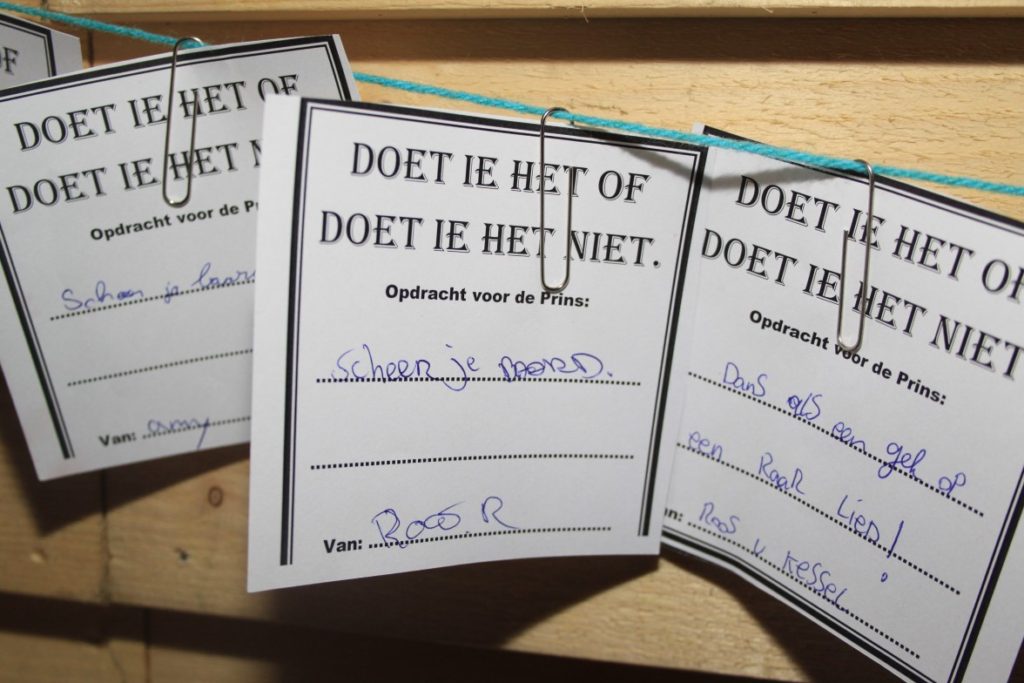 OF
DOET IE HET OF
DOET IE HET N
Opdracht voor de Pr
Scheer je baard
Van: amy
DOET IE HET OF
DOET IE HET NIET.
Opdracht voor de Prins:
Scheer je BAARD.
Van: Roos R
DOET IE HET OF
DOET IE HET NIET
Opdracht voor de Prins:
Dans als een gek op
een Raar Lied!
an: Roos v kessel